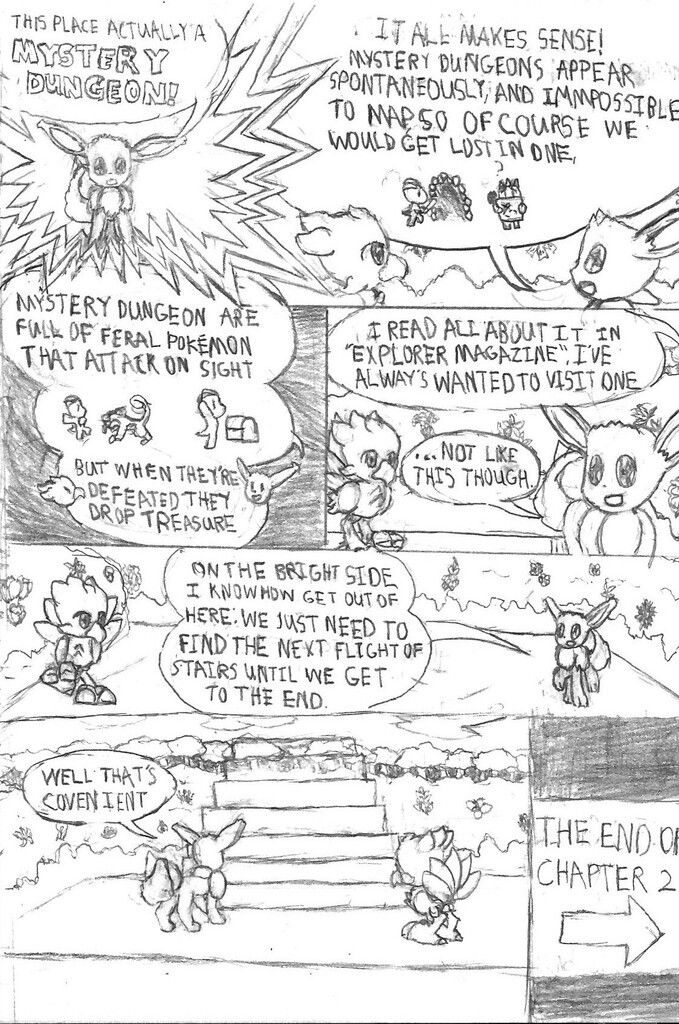 THIS PLACE ACTUALLY A
MYSTERY
DUNGEON!
IT ALL MAKES SENSE!
MYSTERY DUNGEONS APPEAR
SPONTANEOUSLY, AND IMMPOSSIBLE
TO MAP, SO OF COURSE WE
WOULD GET LOST IN ONE,
MYSTERY DUNGEON ARE
FULL OF FERAL POKÉMON
THAT ATTACK ON SIGHT
BUT WHEN THEY'RE
DEFEATED THEY
DROP TREASURE
I READ ALL ABOUT IT IN
"EXPLORER MAGAZINE" I'VE
ALWAY'S WANTED TO VISIT ONE
...NOT LIKE
THIS THOUGH.
ON THE BRIGHT SIDE
I KNOW HOW GET OUT OF
HERE. WE JUST NEED TO
FIND THE NEXT FLIGHT OF
STAIRS UNTIL WE GET
TO THE END.
WELL THAT'S
COVENIENT
THE END OF
CHAPTER 2